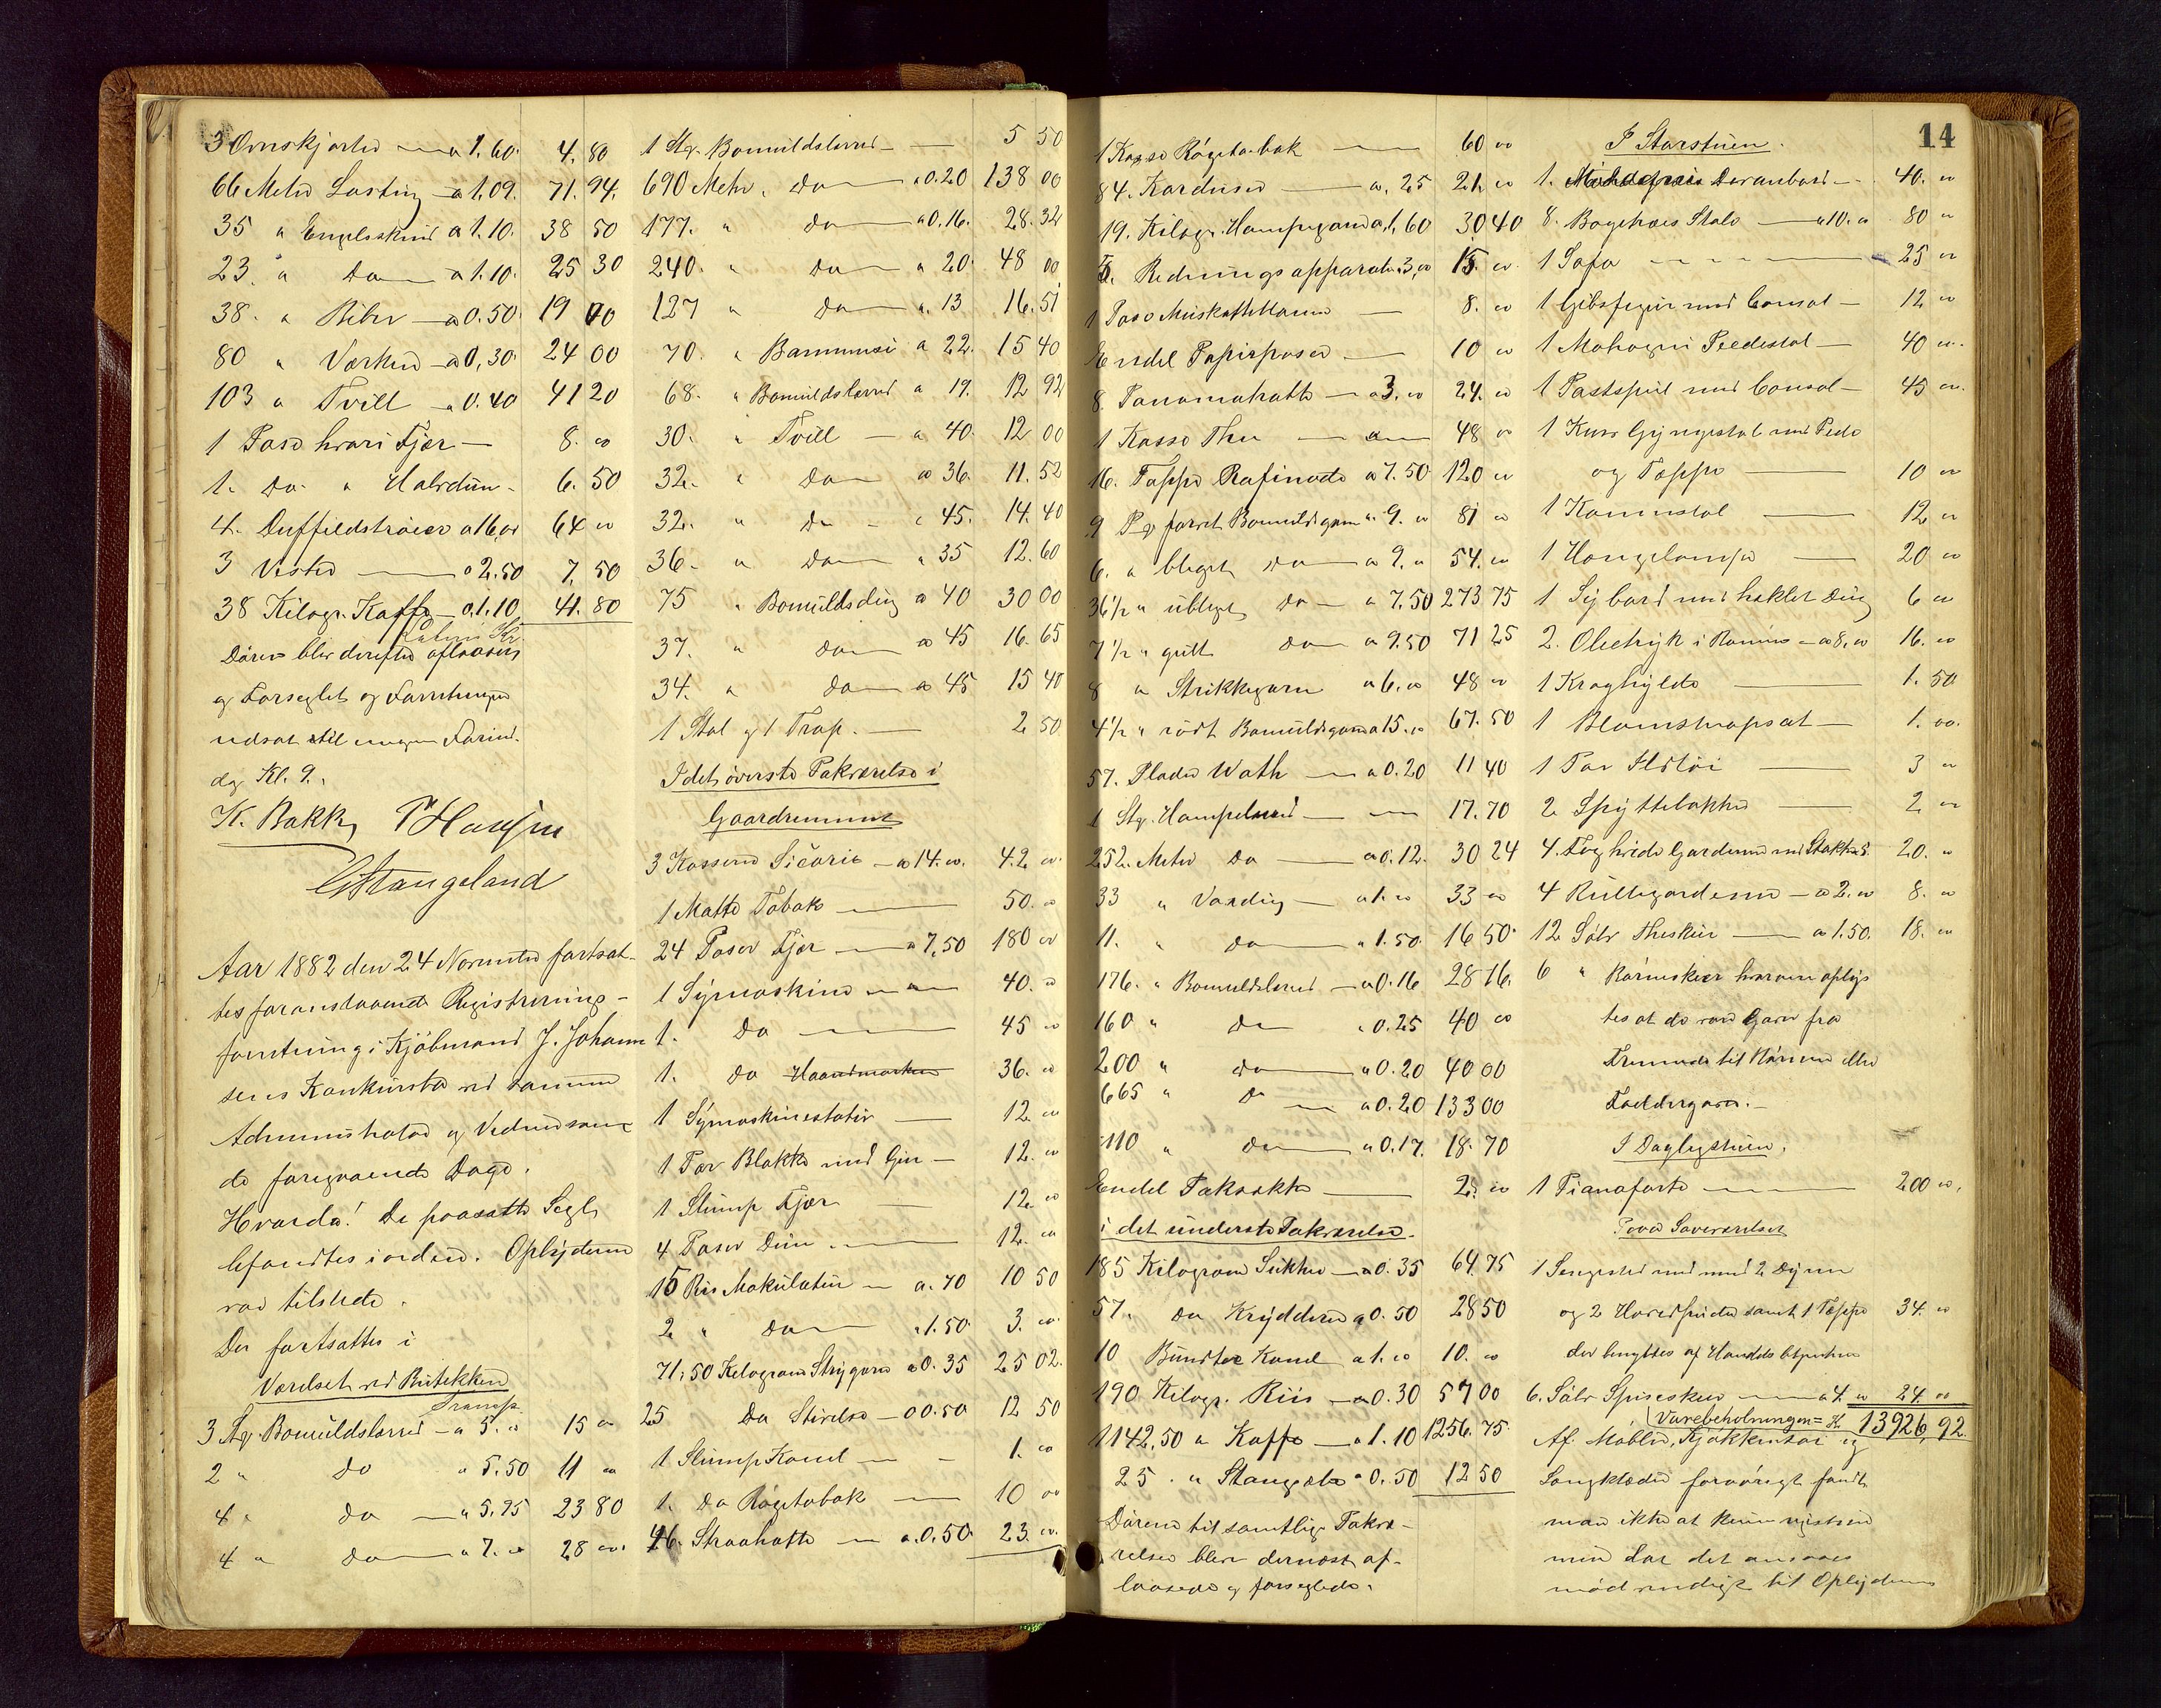 3 Overskjorter — a 1,60. 4,80
66 Meter Lasting — a 1,09. 71,94.
35 " Engelskind a 1.10. 38 50
23. " Do — a 1.10. 25 30
38. " Biber — a 0.50. 19 00
80 " Værken — a 0,30. 24 00
103 " Tvill — a 0.40 41 20
1 Pose hvori Fjær — 8. 00
1. Do. " Halvdun - 6. 50
4. Duffeldstrøier a 16,00 64 00
3 Veste — a 2.50 7,50
38 Kilogr. Kaffe — a 1.10. 41.80
Døren blev derefter aflaaset
og Forseglet og Forretningen
udsat til imorgen Formid-
dag Kl. 9.
K. Bakke P Hansen
Stangeland
Aar 1882 den 24 November fortsat-
tes foranstaaende Registrerings-
forretning i Kjøbmand J. Johanne
sens Konkursbo ved samme
Administrator og Vidner som
de foregaaende Dage.
Hvorda! De paasatte Segl
befandtes i orden. Oplyderen
var tilstede.
Der fortsattes i
Værelset ved Butikken
Transp.
3 Stk. Bomuldslerred — a 5. 00 15 00
2 " Do " 5.50 11 00
4 " Do — " 5,95 23 80
4 " Do — " 7. 00 28 00.
1 Stk. Bomuldslerred — 5 50
690 Meter. Do — a 0.20 138 00
177. " Do — a 0.16. 28. 32
240. " Do — a 20. 48 00
127 " Do — a. 13 16. 51
70. " a 22. 15 40
68. " Bomuldslerred a 19. 12 92
30. " Tvill — a 40. 12 00
32. " Do — a 36. 11. 52
32. " Do — a 45. 14. 40
36. " Do — a 35 12. 60
75 " Bomuldsdug a 40 30 00
37. " Do — a 45 16. 65
34. " Do — a 45 15 40
1 Stol og 1 Trap. — 2 50
I det øverste Pakværelse i
Gaardrummet
3 Kasser Sicorie — a 14. 00. 42 00.
1 Matte Tobak — 50. 00
24 Poser Fjær — a 7,50 180 00
1 Symaskine — 40. 00
1. Do — 45 00
1. Do 36. 00
1 Symaskinestativ — 12 00
1 Par Blakke med Gin — 12. 00
1 Slump Fjær — 12. 00
4 Poser Dun — 12. 00
15 Ris Makulatur — a. 70 10 50
2 " Do — a 1.50. 3. 00.
71,50 Kilogram Strygarn a 0. 35 25 02.
25 Do Stivelse — a 0.50 12 50
1 Slump Kanel — 1. 00
1. Do Røgetobak — 10 00
46. Straahatte — a. 0.50. 23. 00.
14
1 Kasse Røgetobak — 60 00
84. Karduser — a. 25 21. 00
19. Kilogr. Hampegarn a 1,60 30 40
5. Redningsapparater a 3,00 15. 00.
1 Pose — 8. 00
Endel Papirposer — 10 00
8. Panamahatte — a 3. 00 24. 00
1 Kasse The — 48 00
16. Toppe Rafinade a 7.50 120 00
9 Pk farvet Bomuldsgarn a 9. 00 81 00
6. " bleget Do — a 9. 00 54. 00
36 1/2 " ubleget Do — a 7.50 273 75
7 1/2 " gult Do — a 9.50 71 25
8 " Strikkegarn a 6. 00 48 00
4 1/2 " rødt Bomuldsgarn a 15. 00 67. 50
57. Plader Wath — a 0.20 11 40
1 Stk. Hampelerred — 17. 70
252. Meter Do — a 0.12. 30 24
33 " Voxdug — a 1. 00 33 00
11. " Do — a 1.50. 16 50.
176. " Bomuldslerred — a 0.16 28 16.
160 " Do a 0.25 40 00
200 " Do — a 0.20 40 00
665 " Do — a 0.20 133 00
110 " Do — a 0.17. 18. 70
Endel Paksækker — 2. 00
i det underste Pakværelse.
185 Kilogram Sukker — a 0. 35 64. 75
57. Do Krydderer a 0. 50 28 50
10 Bundter Kanel a 1. 00 10. 00
190 Kilogr. Riis — a 0.30 57 00
1142,50 " Kaffe — a 1.10 1256. 75.
25 " a 0.50 12 50
Dørene til samtlige Pakvæ-
relser blev dernæst af-
laasede og forseglede.
I Storstuen.
1. 40. 00
8. Bøgetræes Stole — a 10. 00 80 00
1 Sofa — 25 00
1 Gibsfigur med Consol — 12 00
1 Mahogni Peedestal — 40 00.
1 med Consol — 45 00.
1 Kurv Gyngestol med Pude
og Teppe — 10 00
1 Kaminstol — 12 00
1 Hengelampe — 20 00
1 Sybord med heklet Dug 6 00
2. Olietryk i Ramme — a 8. 00 16. 00
1 — 1. 50
1 Blomstrapsat — 1. 00.
1 Par Ildtøi — 3 00
2 Spyttebakker — 2 00
4. Fag hvide Gardiner med Stokke a 5. 20. 00
4 Rullegardiner — a 2. 00 8. 00
12 Sølv Theskeer — a 1.50. 18. 00
6 " hvorom oplys
tes at de var Gave fra
til Konen eller
Faddergave. —
I Dagligstuen.
1 Pianoforte — 200 00.
Paa Soveværelset
1 Sengested med 2 Dyner
og 2 Hovedpuder samt 1 Teppe 34. 00
der benyttes af Handelsbetjenten
6. Sølv Spiseskeer — a 4 00 24. 00
(Varebeholdningen = Kr. 13926,92.
Af Møbler, Kjøkkentøi og
Sengklæder forøvrigt fandt
man ikke at kunne registrere
mere da det ansaaes
nødvendigt til Oplyderens